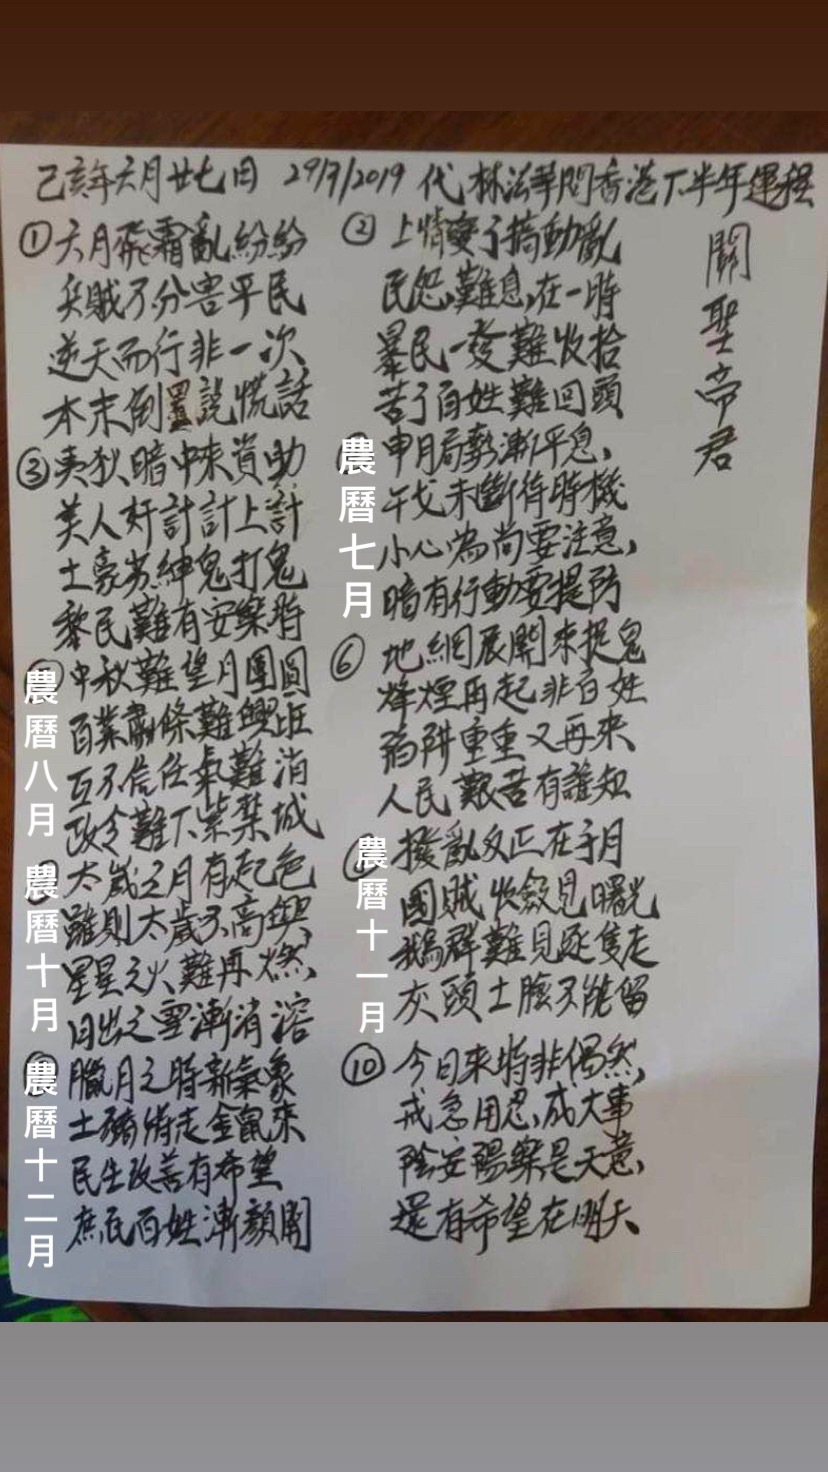 己亥年六月廿七日 29/7/2019 代林法華問香港下半年運程
關聖帝君
①六月飛霜亂紛紛
兵賊不分害平民
逆天而行非一次
本末倒置說慌話
②上情變了搞動亂
民怨難息,在一時
暴民一發難收拾
苦了百姓難回頭
③夷狄暗中來資助
美人奸計計上計
土豪劣紳鬼打鬼
黎民難有安樂時
農曆七月
申月局勢漸平息,
干戈未斷待時機
小心為尚要注意,
暗有行動要提防
農曆八月
中秋難望月團圓
百業蕭條難興旺
互不信任氣難消
政令難下紫禁城
⑥地網展開來捉鬼
烽煙再起非百姓
陷阱重重又再來
人民艱苦有誰知
農曆十月
太歲之月有起色
雖則太歲不高興,
星星之火難再燃,
日出之雪漸消溶
農曆十一月
撥亂反正在子月
國賊收斂見曙光
鵝群難見逐隻走
灰頭土臉不能留
農曆十二月
臘月之時新氣象
土豬將走金鼠來
民生改善有希望
庶民百姓漸顏開
⑩今日来特非偶然,
戒急用忍,成大事
陰安陽樂是天意,
還有希望在明天